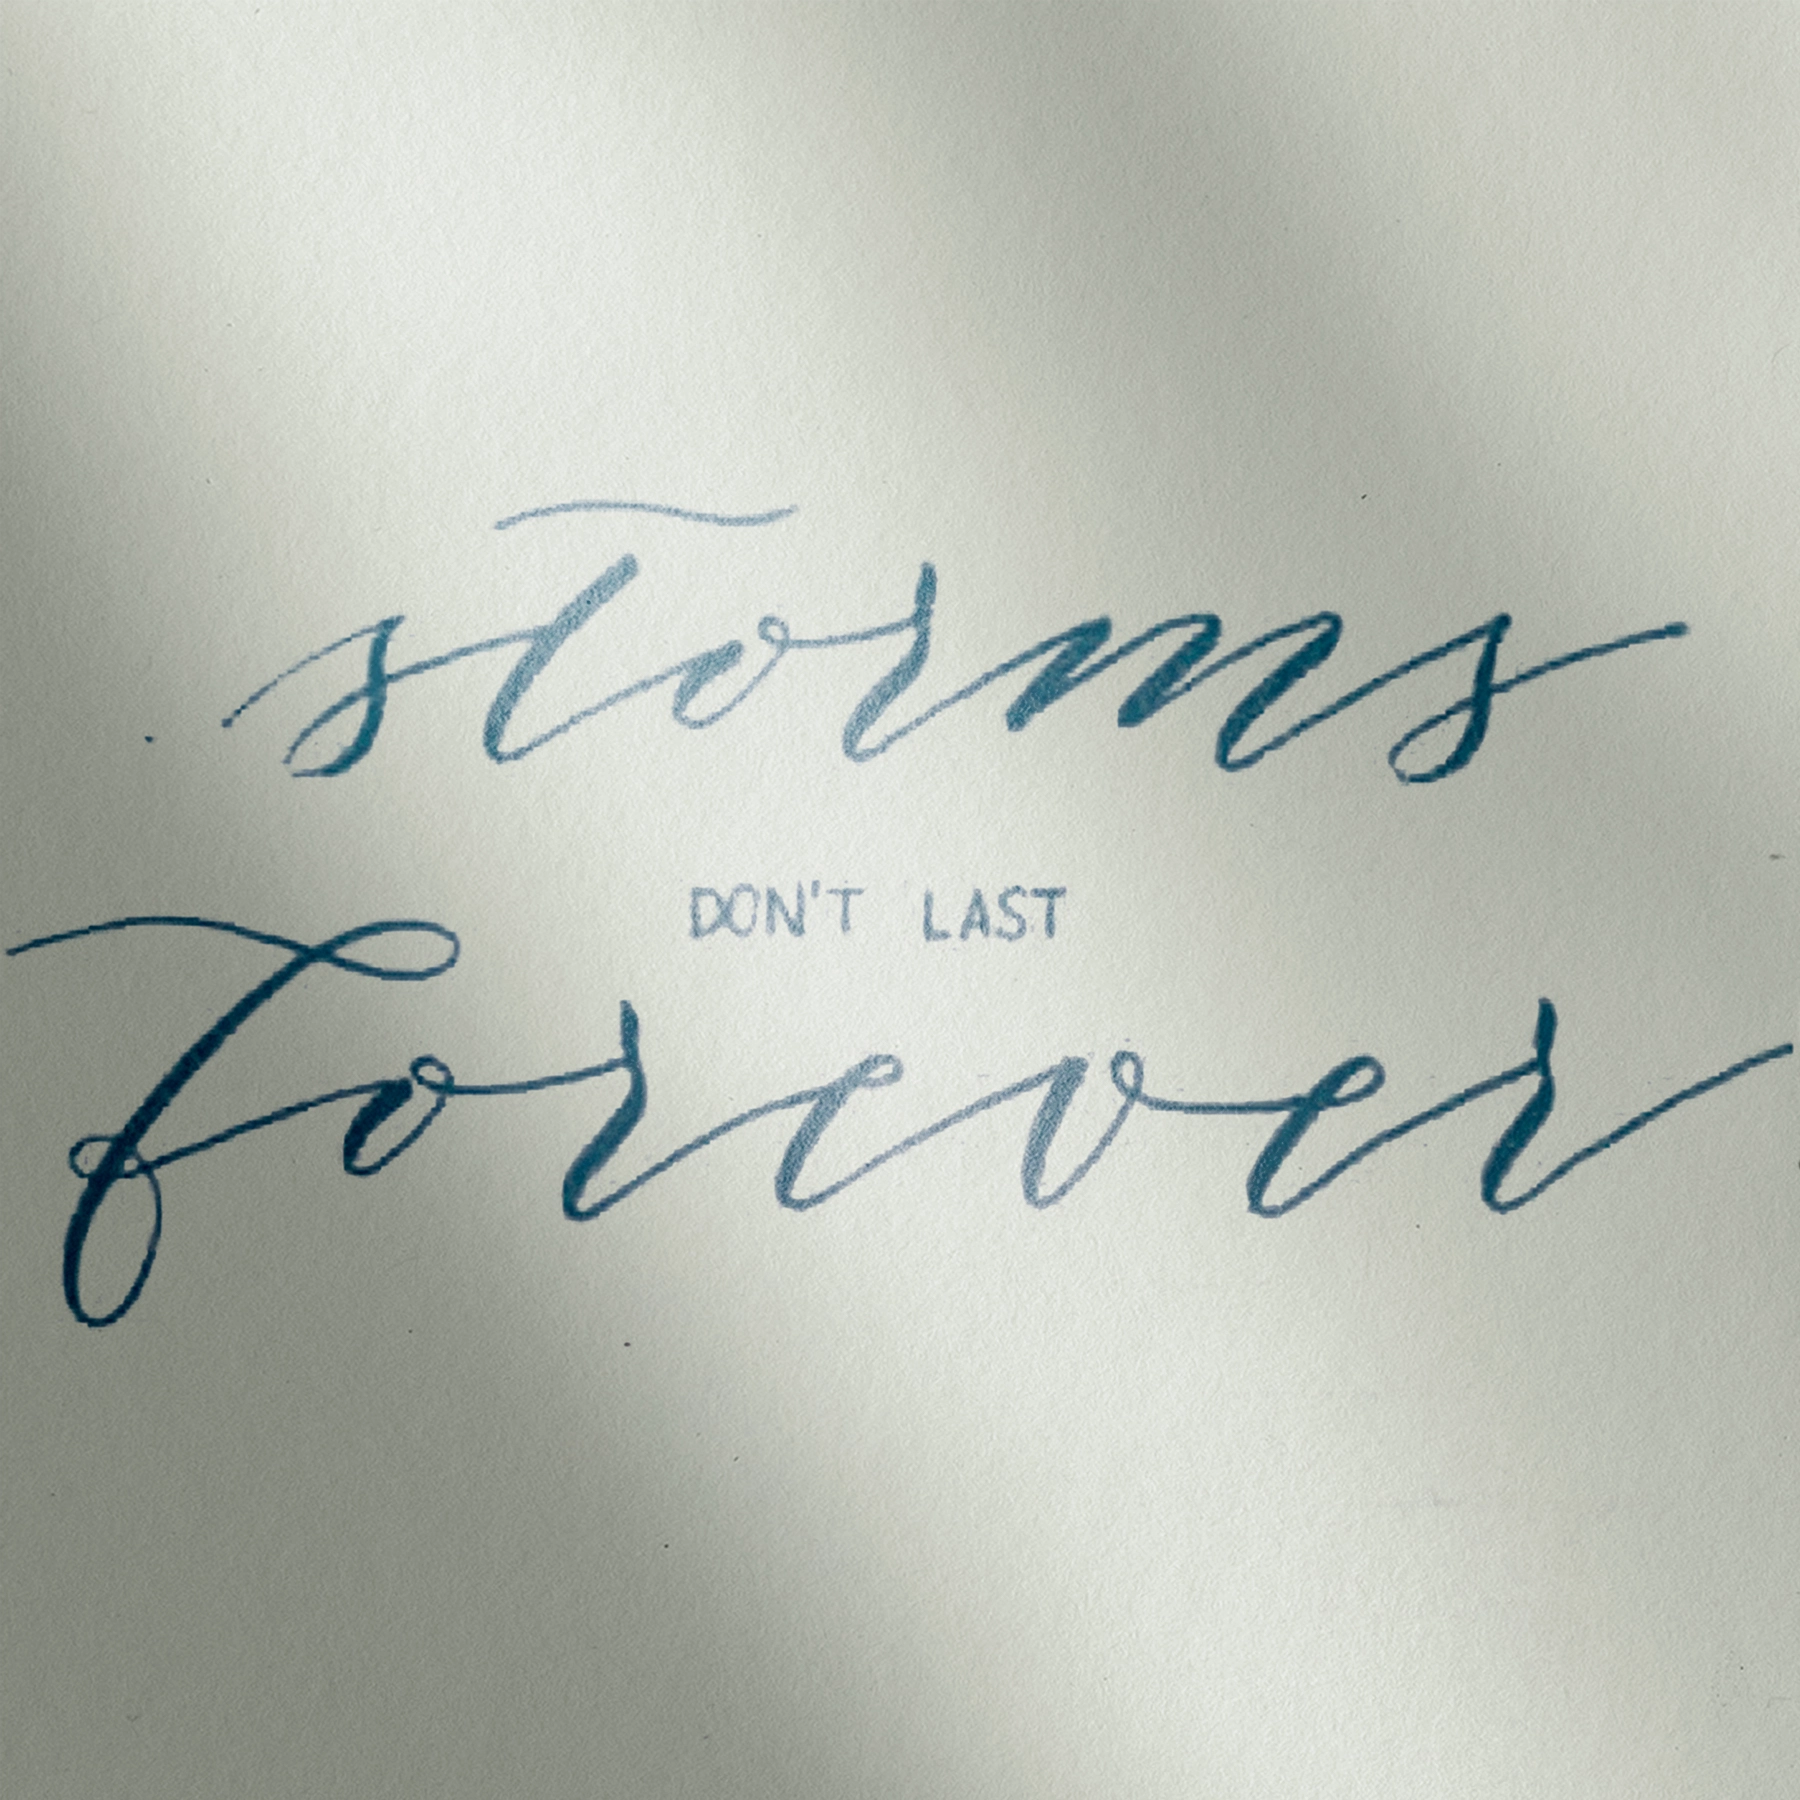 storms
DON'T LAST
forever